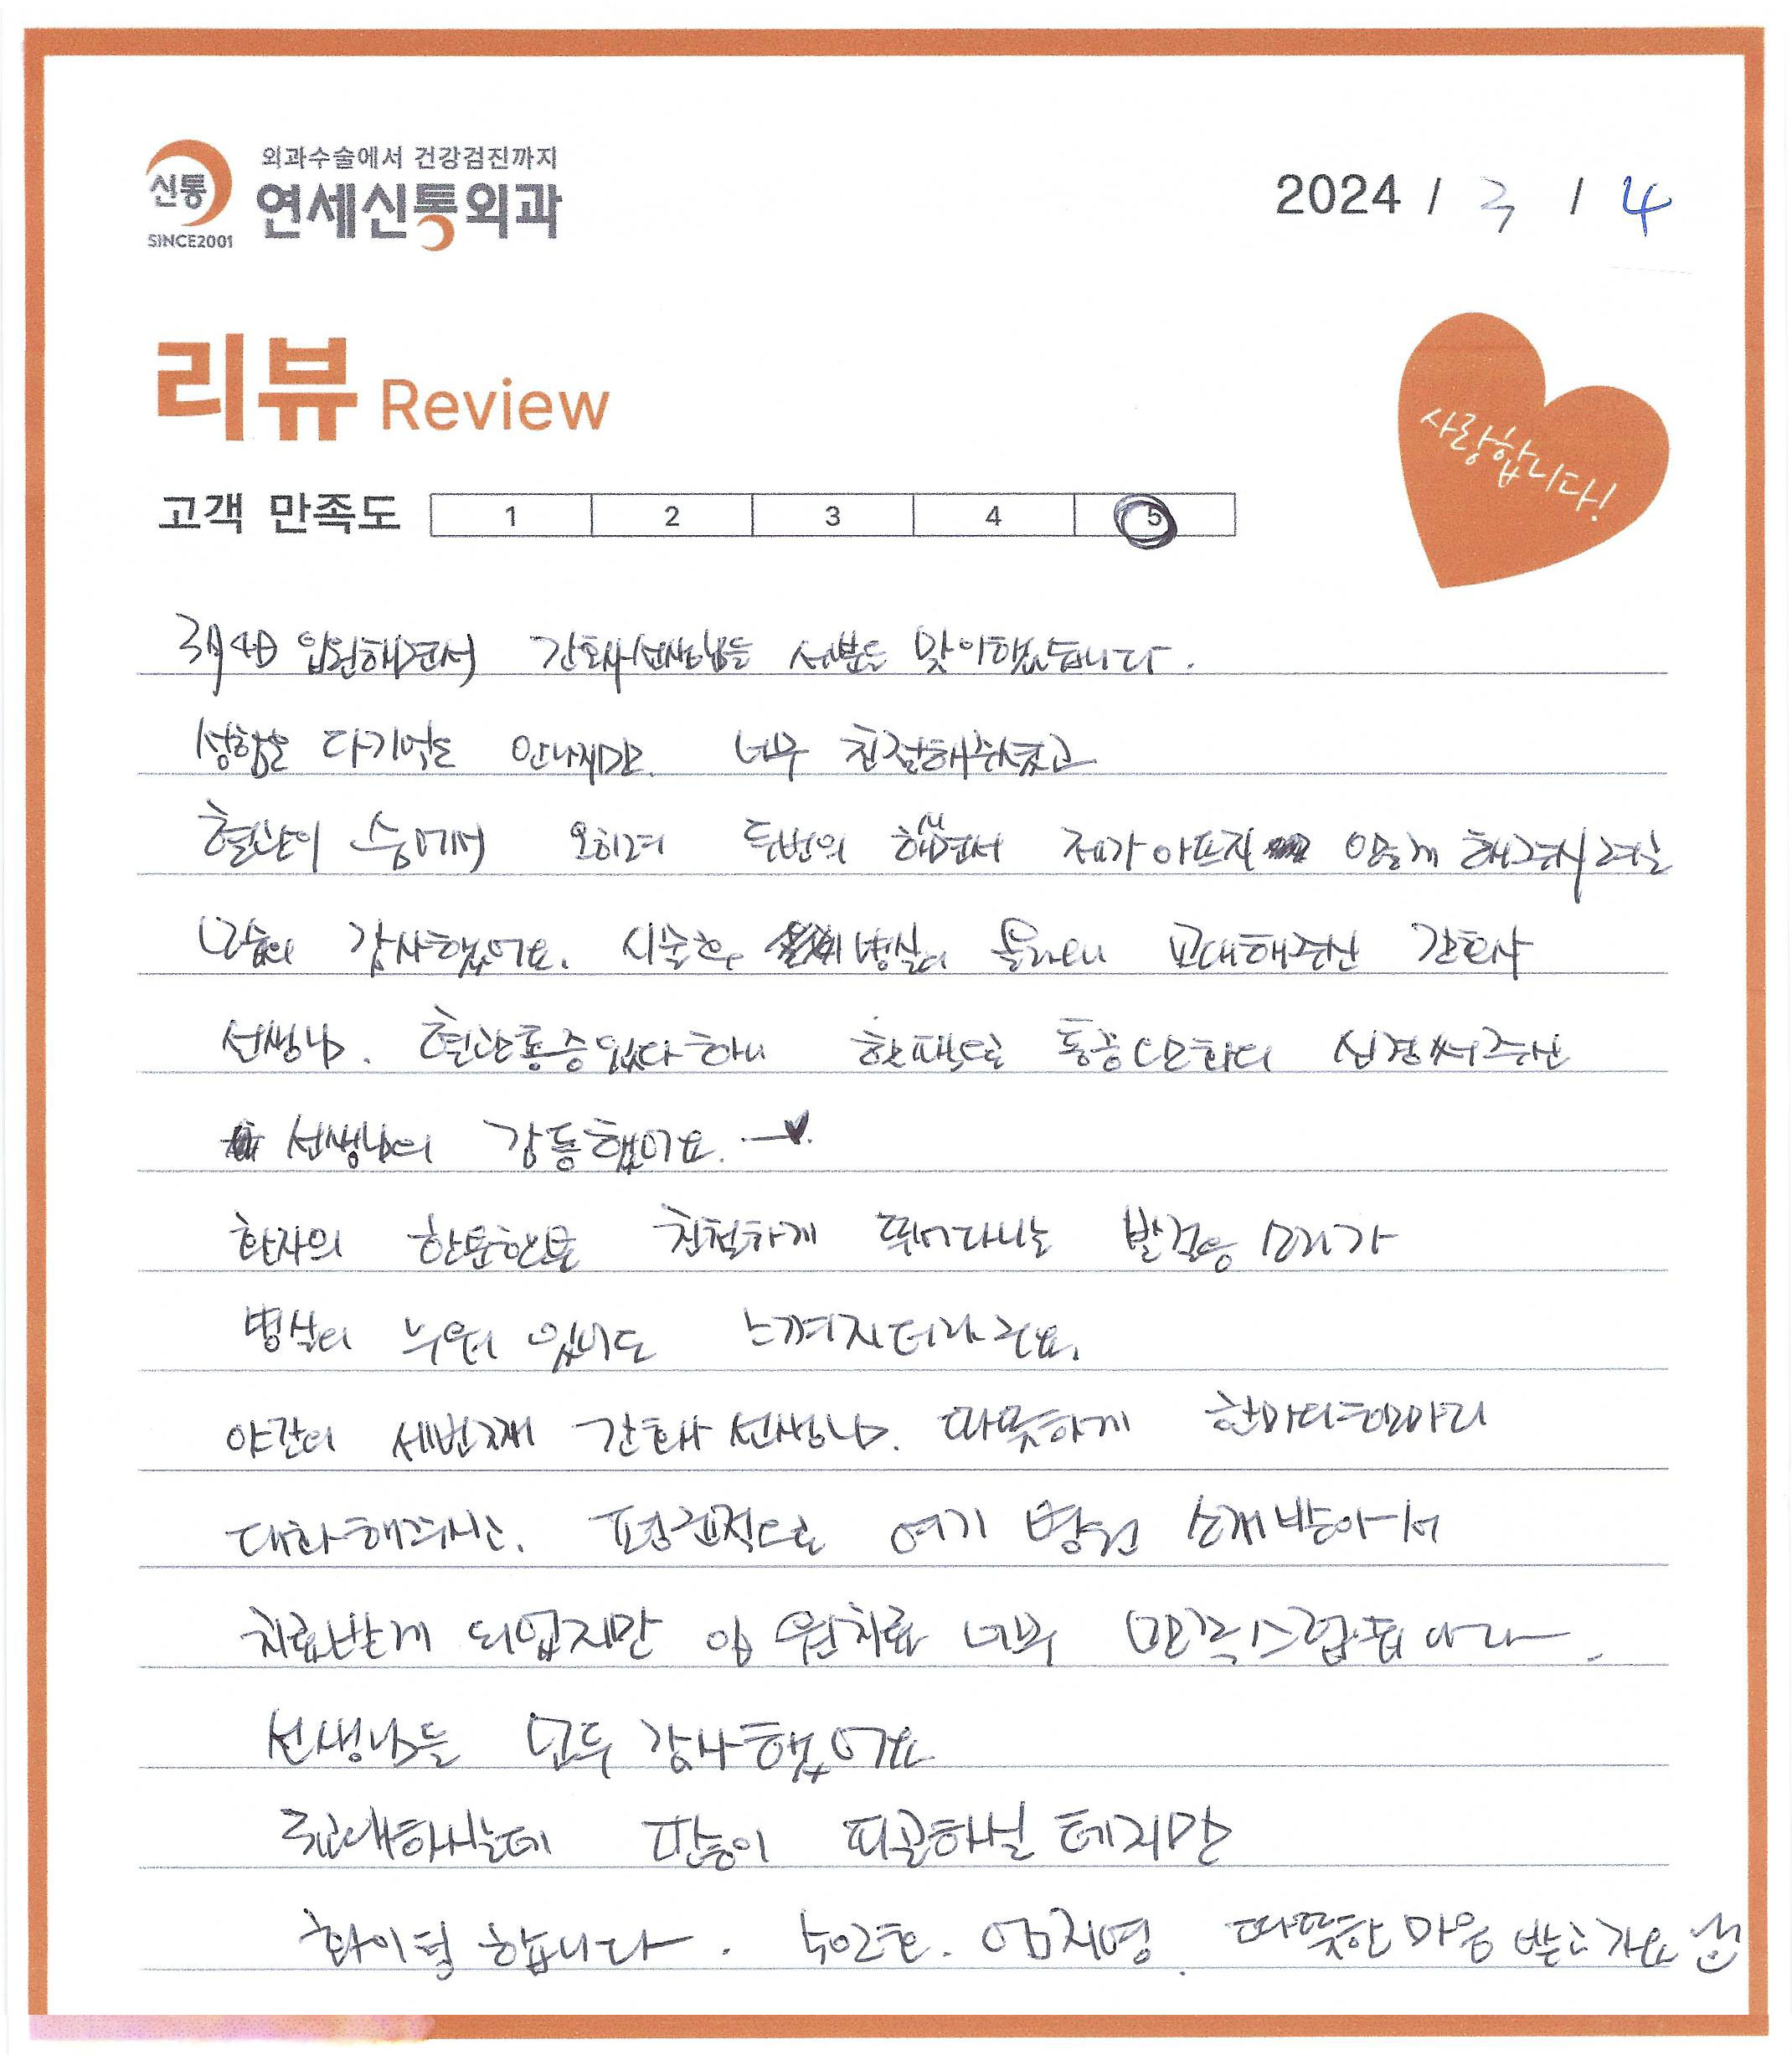 신통
SINCE2001
외과수술에서 건강검진까지
연세신통외과
2024 / 3 / 4
리뷰 Review
사랑합니다!
고객 만족도 1 2 3 4 5
3月4日 입원해면서 간호사선생님들 세분을 맞이했습니다.
성함은 다기억은 안나지만. 너무 친절해주셨고
혈관이 숨어서 오히려 두번의 하시면서 제가 아프지 않게 해주시려는
모습에 감사했어요. 시술후 병실에 올라오니 교대해주신 간호사
선생님. 혈관통증있다하니 핫팩으로 통증 신경써주신
선생님의 감동했어요.
환자의 한분한분 친절하게 뛰어다니는 발걸음 소리가
병실에 누워 있어도 느껴지더라구요.
야간의 세번째 간호사 선생님. 따뜻하게 한마디한마디
대화해주시고. 여기 병원 소개받아서
치료받게 되었지만 입원치료 너무 만족스럽습니다.
선생님들 모두 감사했어요
3교대하시는데 많이 피곤하실 테지만
화이팅 합니다. 502호. 엄지영. 따뜻한 마음 받고 가요